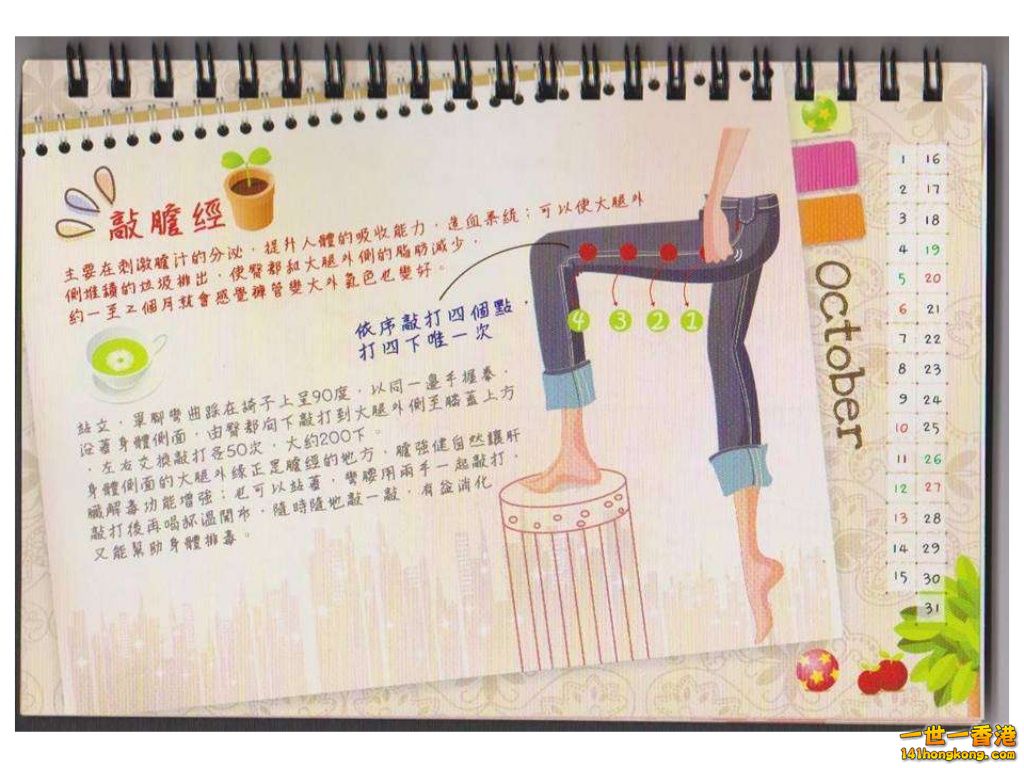 敲膽經
主要在刺激膽汁的分泌，提升人體的吸收能力，造血系統；可以使大腿外
側堆積的垃圾排出，使臀部和大腿外側的脂肪減少，
約一至2個月就會感覺褲管變大外氣色也變好。
依序敲打四個點，
打四下唯一次
4 3 2 1
站立，單腳彎曲踩在椅子上呈90度，以同一邊手握拳，
沿著身體側面，由臀部向下敲打到大腿外側至膝蓋上方
，左右交換敲打各50次，大約200下。
身體側面的大腿外緣正是膽經的地方，膽強健自然讓肝
臟解毒功能增強；也可以站著，彎腰用兩手一起敲打，
敲打後再喝杯溫開水，隨時隨地敲一敲，有益消化
又能幫助身體排毒。
October
1 16
2 17
3 18
4 19
5 20
6 21
7 22
8 23
9 24
10 25
11 26
12 27
13 28
14 29
15 30
31
一世一香港
141hongkong.com